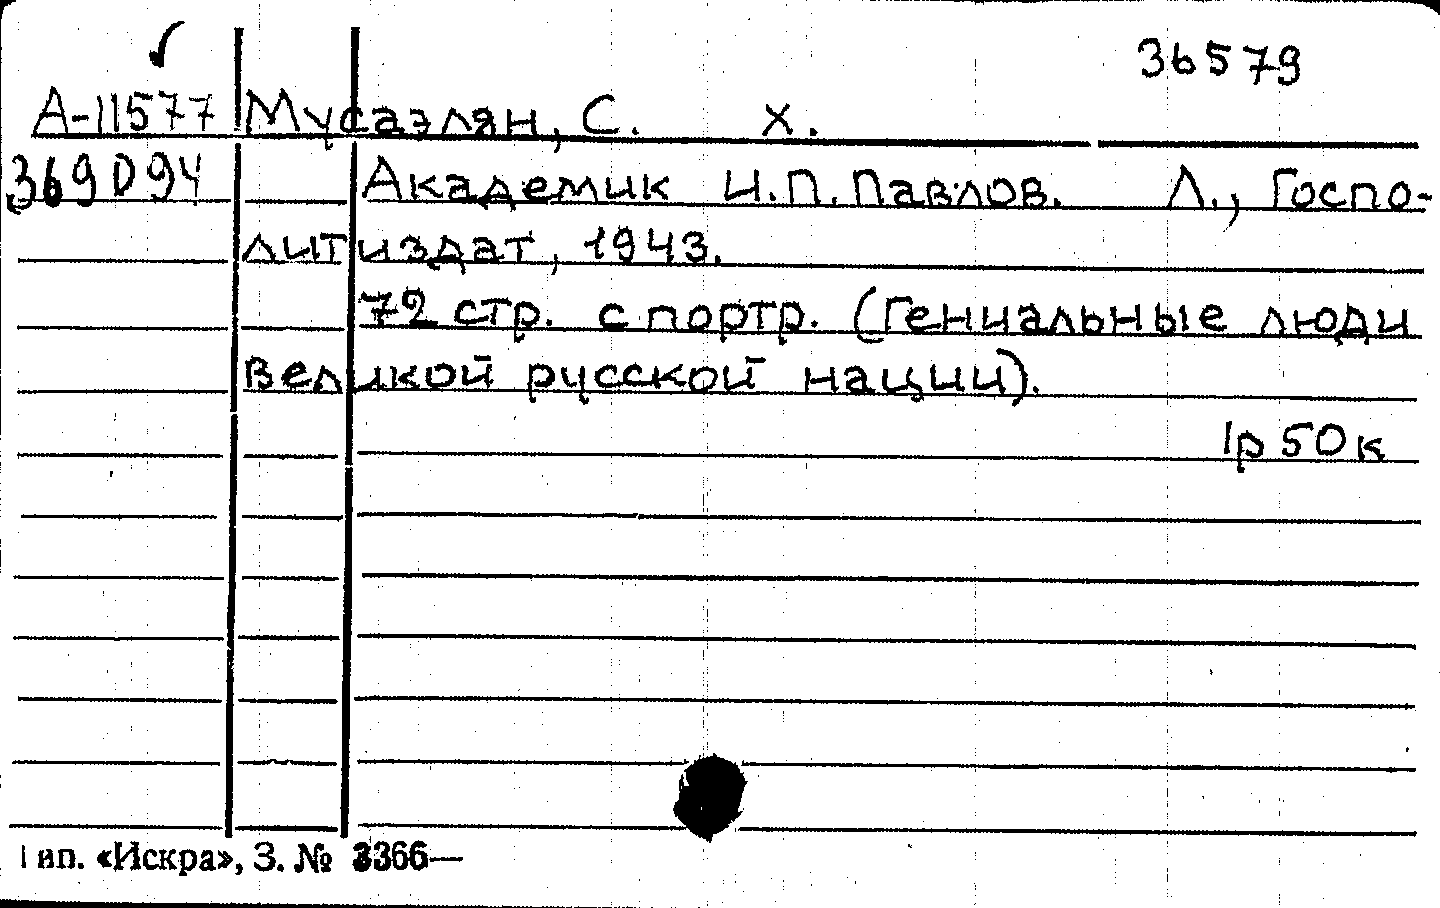 36579
А-11577 Мусаэлян, С. Х.
369094 Академик И.П.Павлов. Л., Госпо-
литиздат, 1943.
72 стр. с портр. (Гениальные люди
великой русской нации).
1р 50к
ип. «Искра», З. № 3366—